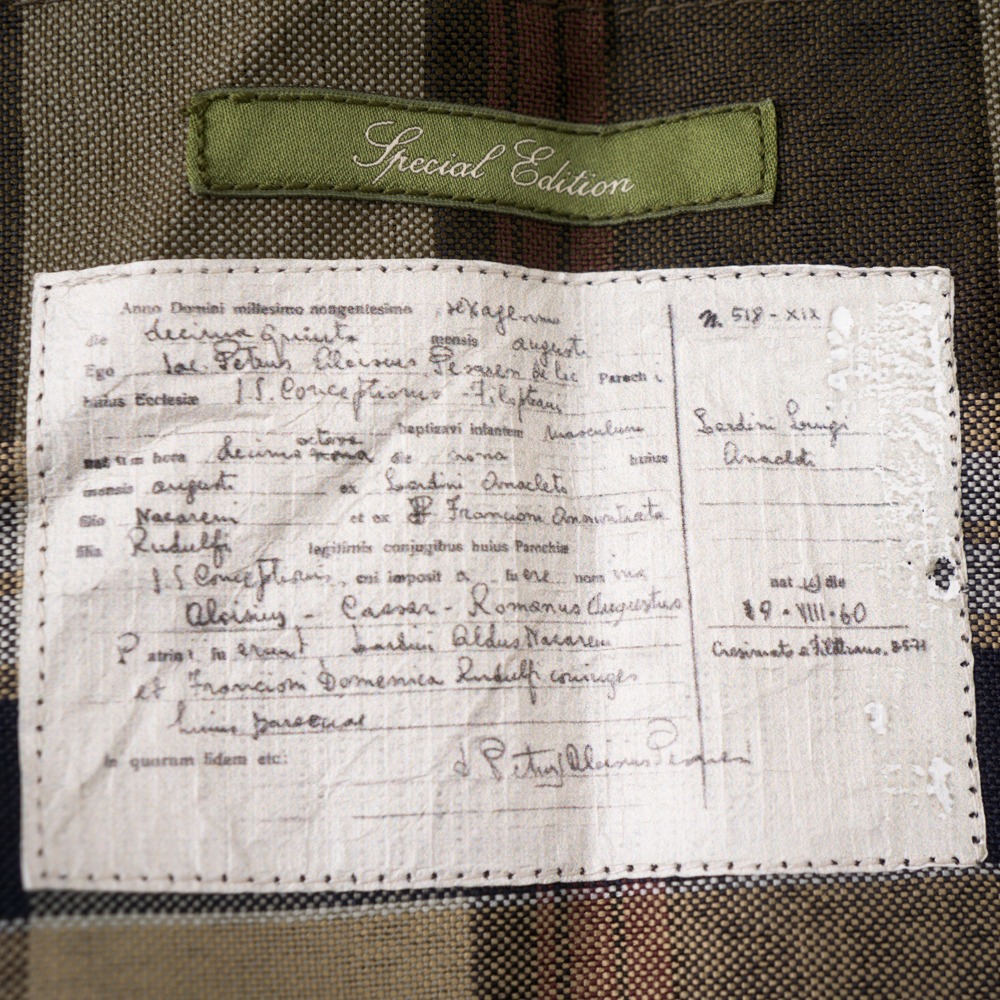 Special Edition
Anno Domini millesimo nongentesimo sexagesimo
die decima quinta mensis augusti
Ego Sac. Petrus Aloisius Paroch
huius Ecclesiæ I.S. Conceptionis - Filottrani
baptizavi infantem masculum
natum hora decima octava die nona huius
mensis augusti ex Lardini Anacleto
filio Nazareni et ex Francioni Annuntiata
filia Rudulfi legitimis conjugibus huius Parochiæ
I.S. Conceptionis, cui imposit a fuere nomina
Aloisius - Caesar - Romanus Augustus
Patrini fuerunt Lardini Aldus Nazareni
et Francioni Domenica Rudulfi coniuges
huius
in quorum fidem etc:
Petrus Aloisius
N. 518 - XIX
Lardini Luigi
Anacleto
nat us die
19 · VIII · 60
Cresimato a Filottrano,